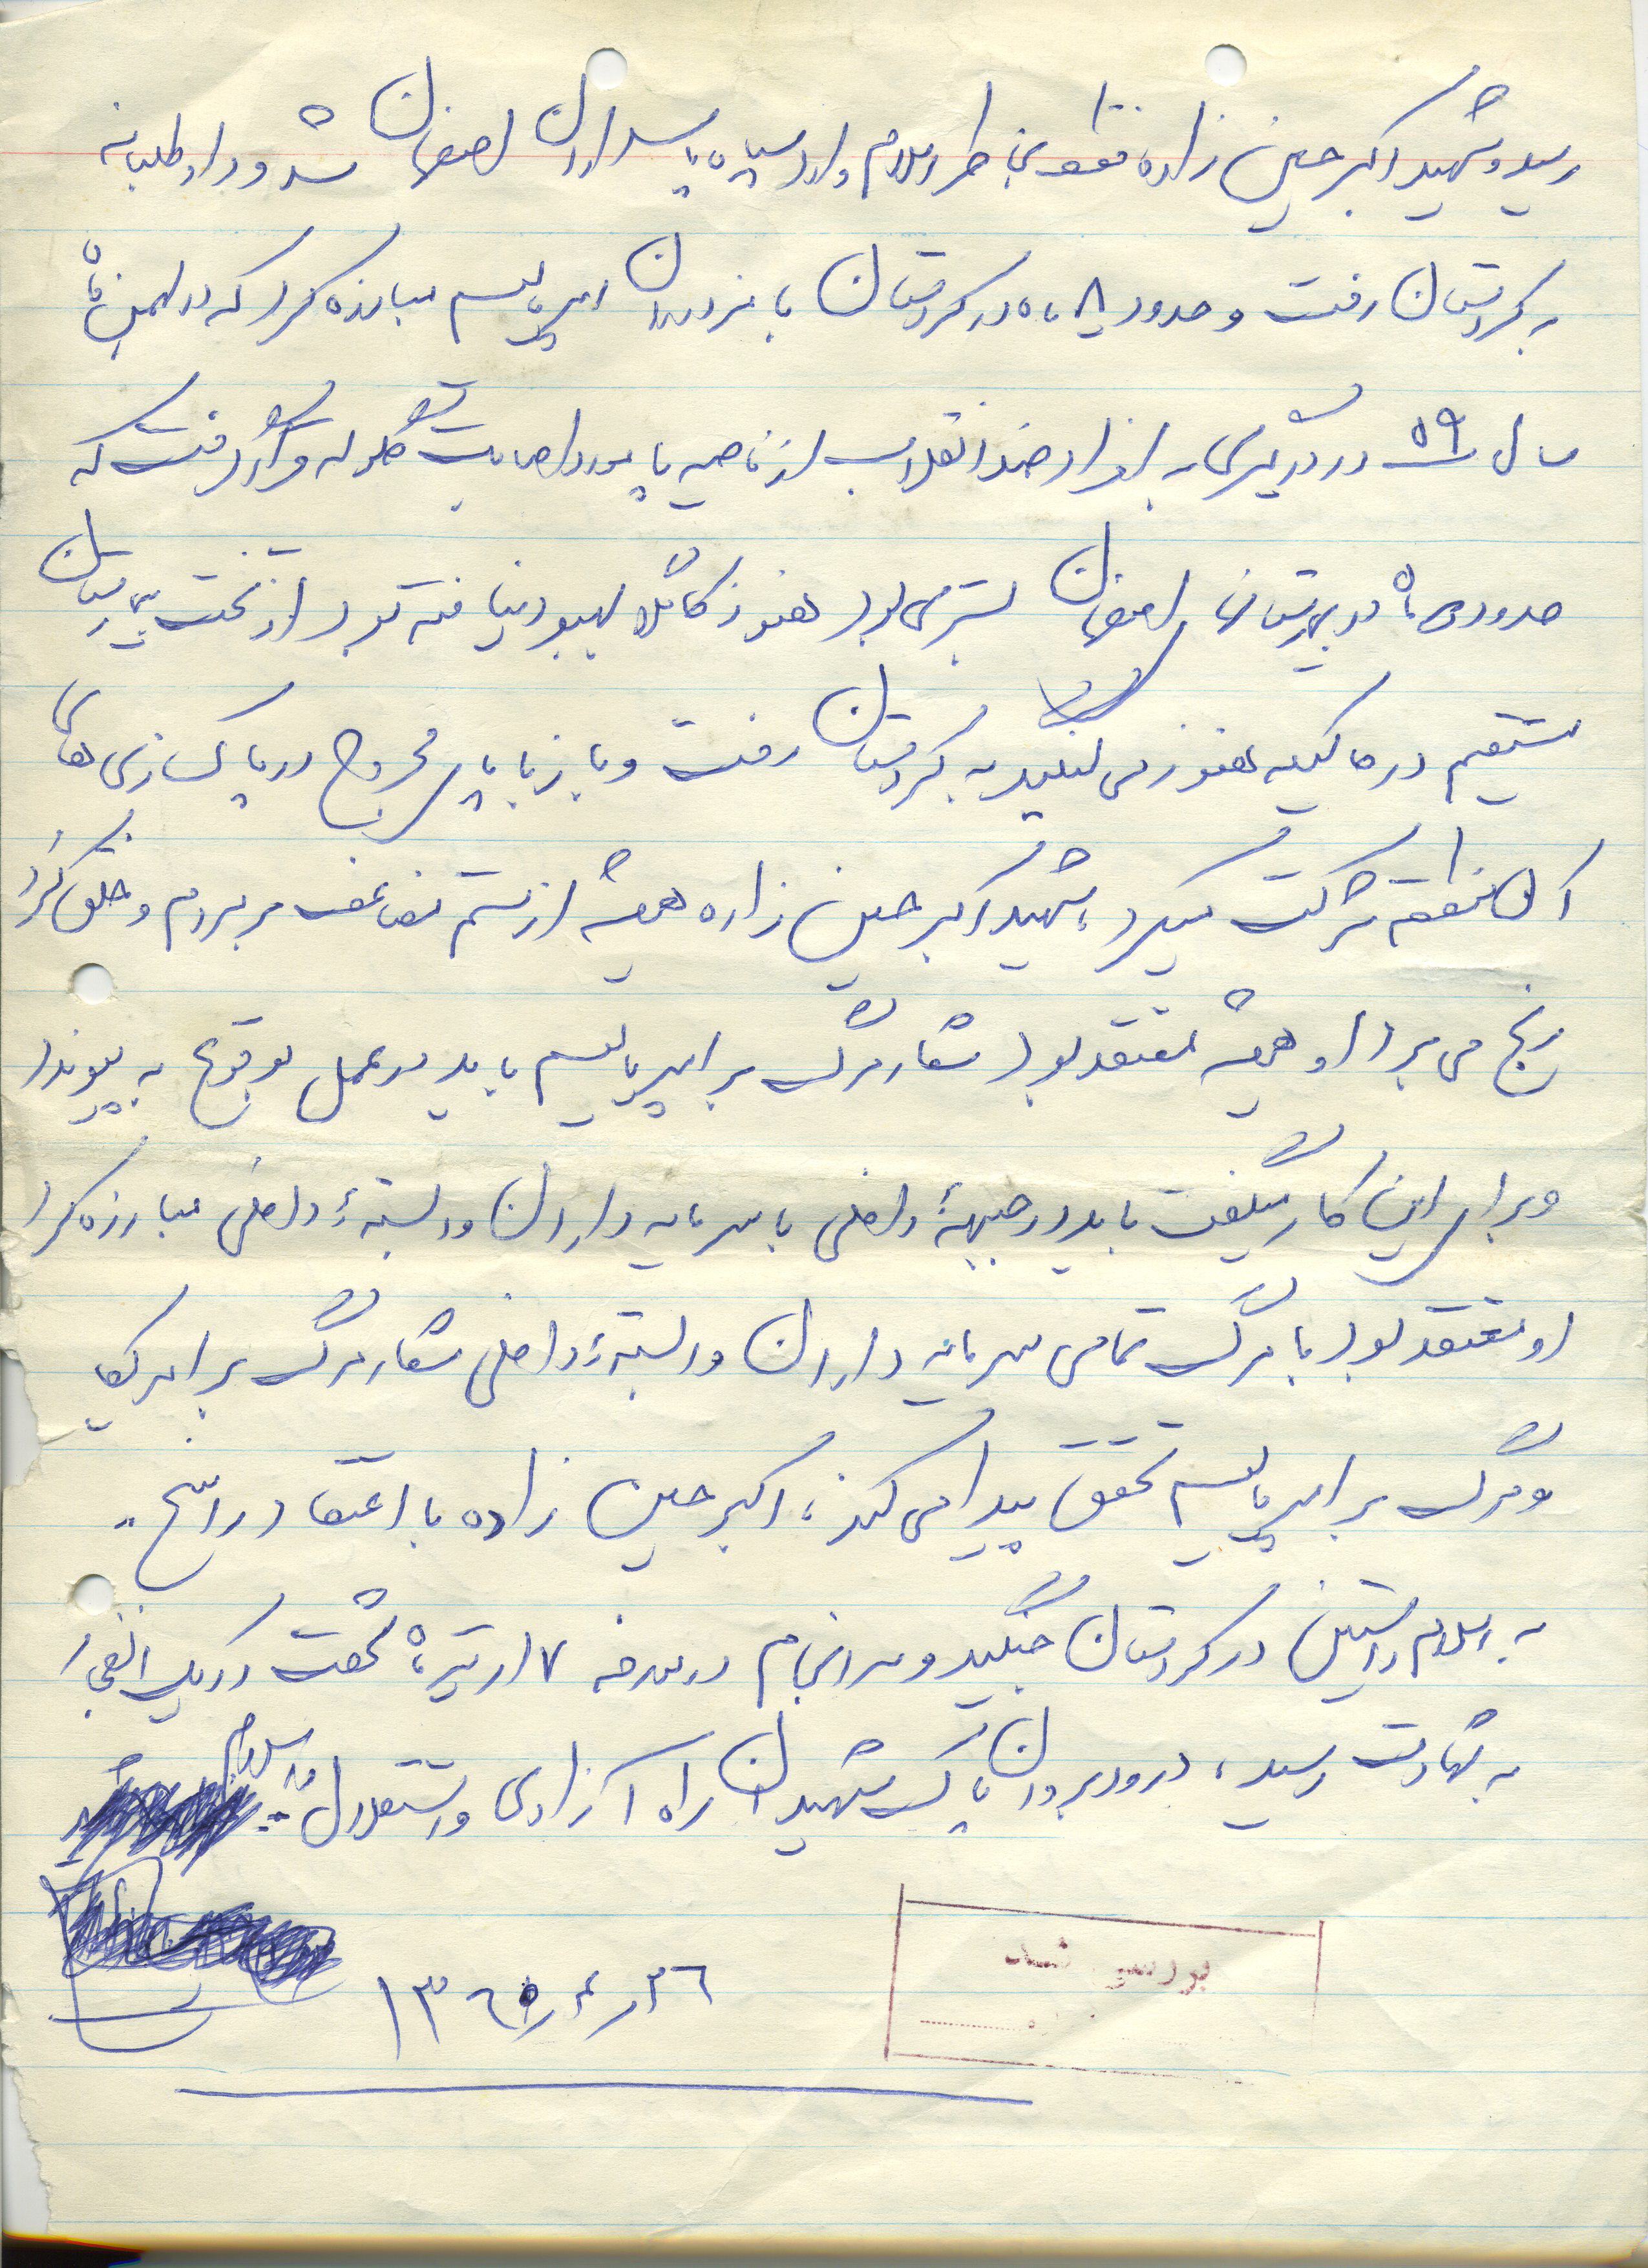 رسید و شهید اکبر حسین زاده فقط بخاطر اسلام وارد سپاه پاسداران اصفهان شد و داوطلبانه
به کردستان رفت و حدود ۸ ماه در کردستان با مزدوران امپریالیسم مبارزه کرد که در بهمن ماه
سال ۵۹ در درگیری با افراد ضد انقلاب از ناحیه پا مورد اصابت گلوله قرار گرفت که
حدود ماه در بیمارستان اصفهان بستری بود هنوز کاملا بهبود نیافته بود از تخت بیمارستان
مستقیم در حالیکه هنوز می لنگید به کردستان رفت و باز با پای مجروح در پاکسازی های
آن منطقه شرکت میکرد، شهید اکبر حسین زاده همیشه از ستم مضاعف بر مردم و خلق کرد
رنج می برد او همیشه معتقد بود شعار مرگ بر امپریالیسم باید در عمل بوقوع به پیوندد
و برای این کار میگفت باید در جبههٔ داخلی با سرمایه داران وابستهٔ داخلی مبارزه کرد
او معتقد بود با مرگ تمامی سرمایه داران وابستهٔ داخلی شعار مرگ بر امریکا
و مرگ بر امپریالیسم تحقق پیدا می کند، اکبر حسین زاده با اعتقاد راسخ
به اسلام راستین در کردستان جنگید و سرانجام در مورخه ۱۷ تیرماه تحت در یک انفجار
به شهادت رسید، درود بروان پاک شهیدان راه آزادی و استقلال
والسلام
۲۶ر۴ر۱۳۶۵
بررسی شد